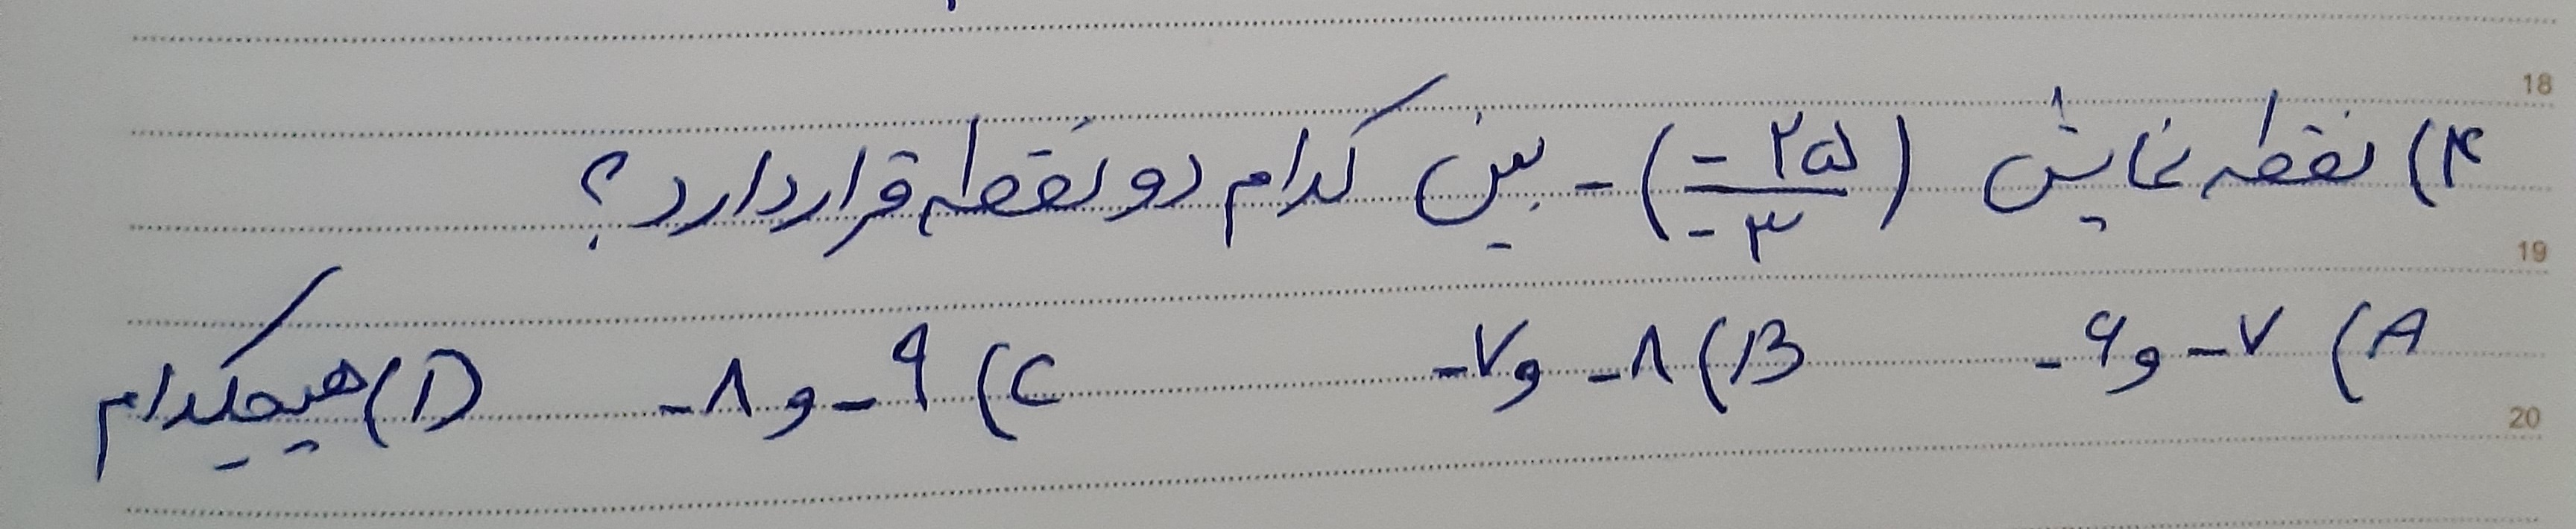 18
۴) نقطه نمایش (-۲۵/-۳)- بین کدام دو نقطه قرار دارد؟
19
A) -۷ و -۶ B) -۸ و -۷ C) -۹ و -۸ D) هیچکدام
20